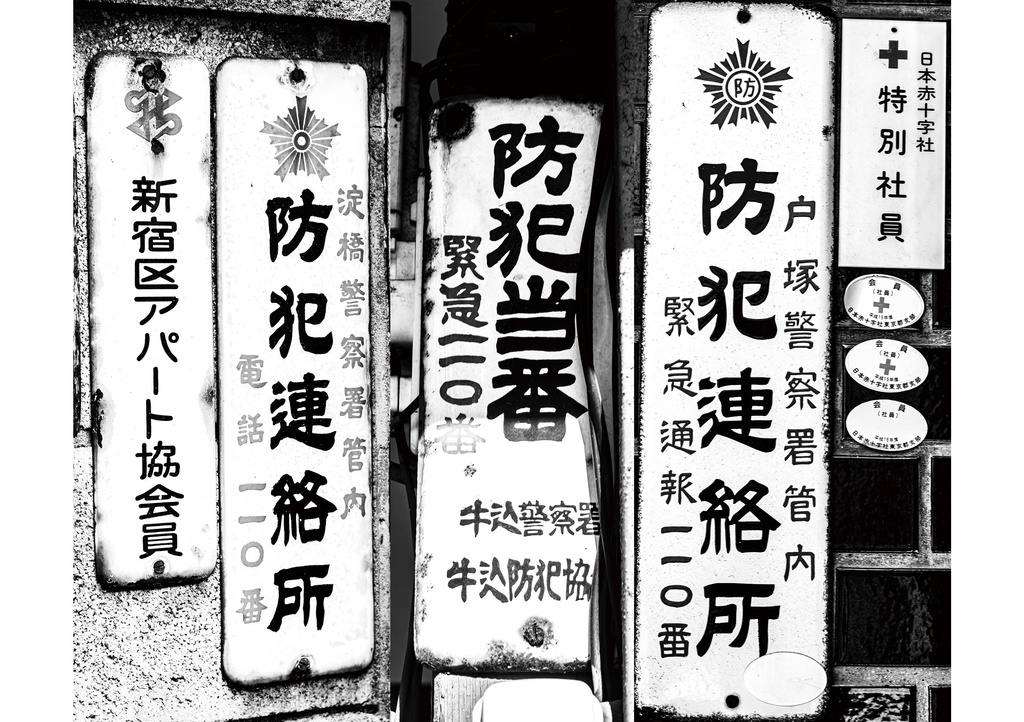 新宿区アパート協会員
淀橋警察署管内
防犯連絡所
電話一一〇番
防犯当番
緊急一一〇番
牛込警察署
牛込防犯協
防
戸塚警察署管内
防犯連絡所
緊急通報一一〇番
日本赤十字社
特別社員
会員
(社員)
平成15年度
日本赤十字社東京都支部
会員
(社員)
平成15年度
日本赤十字社東京都支部
会員
(社員)
日本赤十字社東京都支部